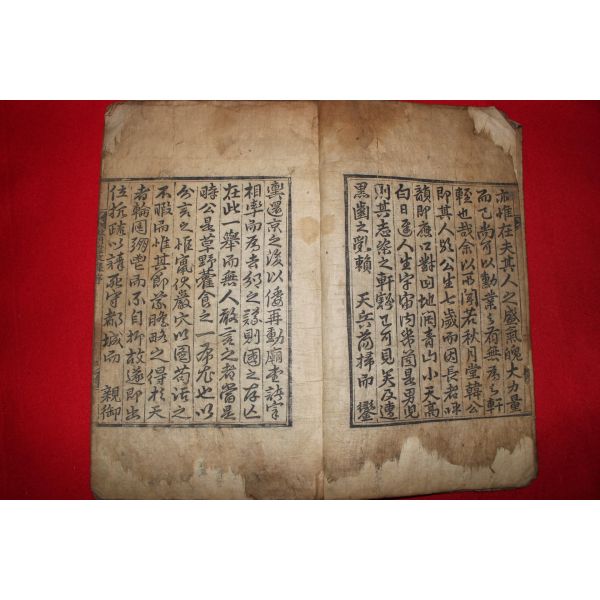 亦惟在夫其人之盛氣魄大力量
而已尚可以勳業之有無爲之軒
輊也哉余以所聞若秋月堂韓公
即其人歟公生七歲而因長者呼
韻即應口對曰地闊靑山小天高
白日遲人生宇宙內常笥是男兒
則其志槩之軒輊已可見矣及遭
黑齒之亂賴 天兵蕩掃而 鑾
輿還京之後以倭再動廟堂諸宰
相率而爲去邠之議則國之存亡
在此一擧而無人敢言之者當是
時公是草野藿食之一布衣也以
分言之惟竄伏巖穴以圖苟活之
不暇而惟其節義膽略之得於天
者輪囷弸中而不自抑故遂即出
位抗疏以請死守都城而 親御